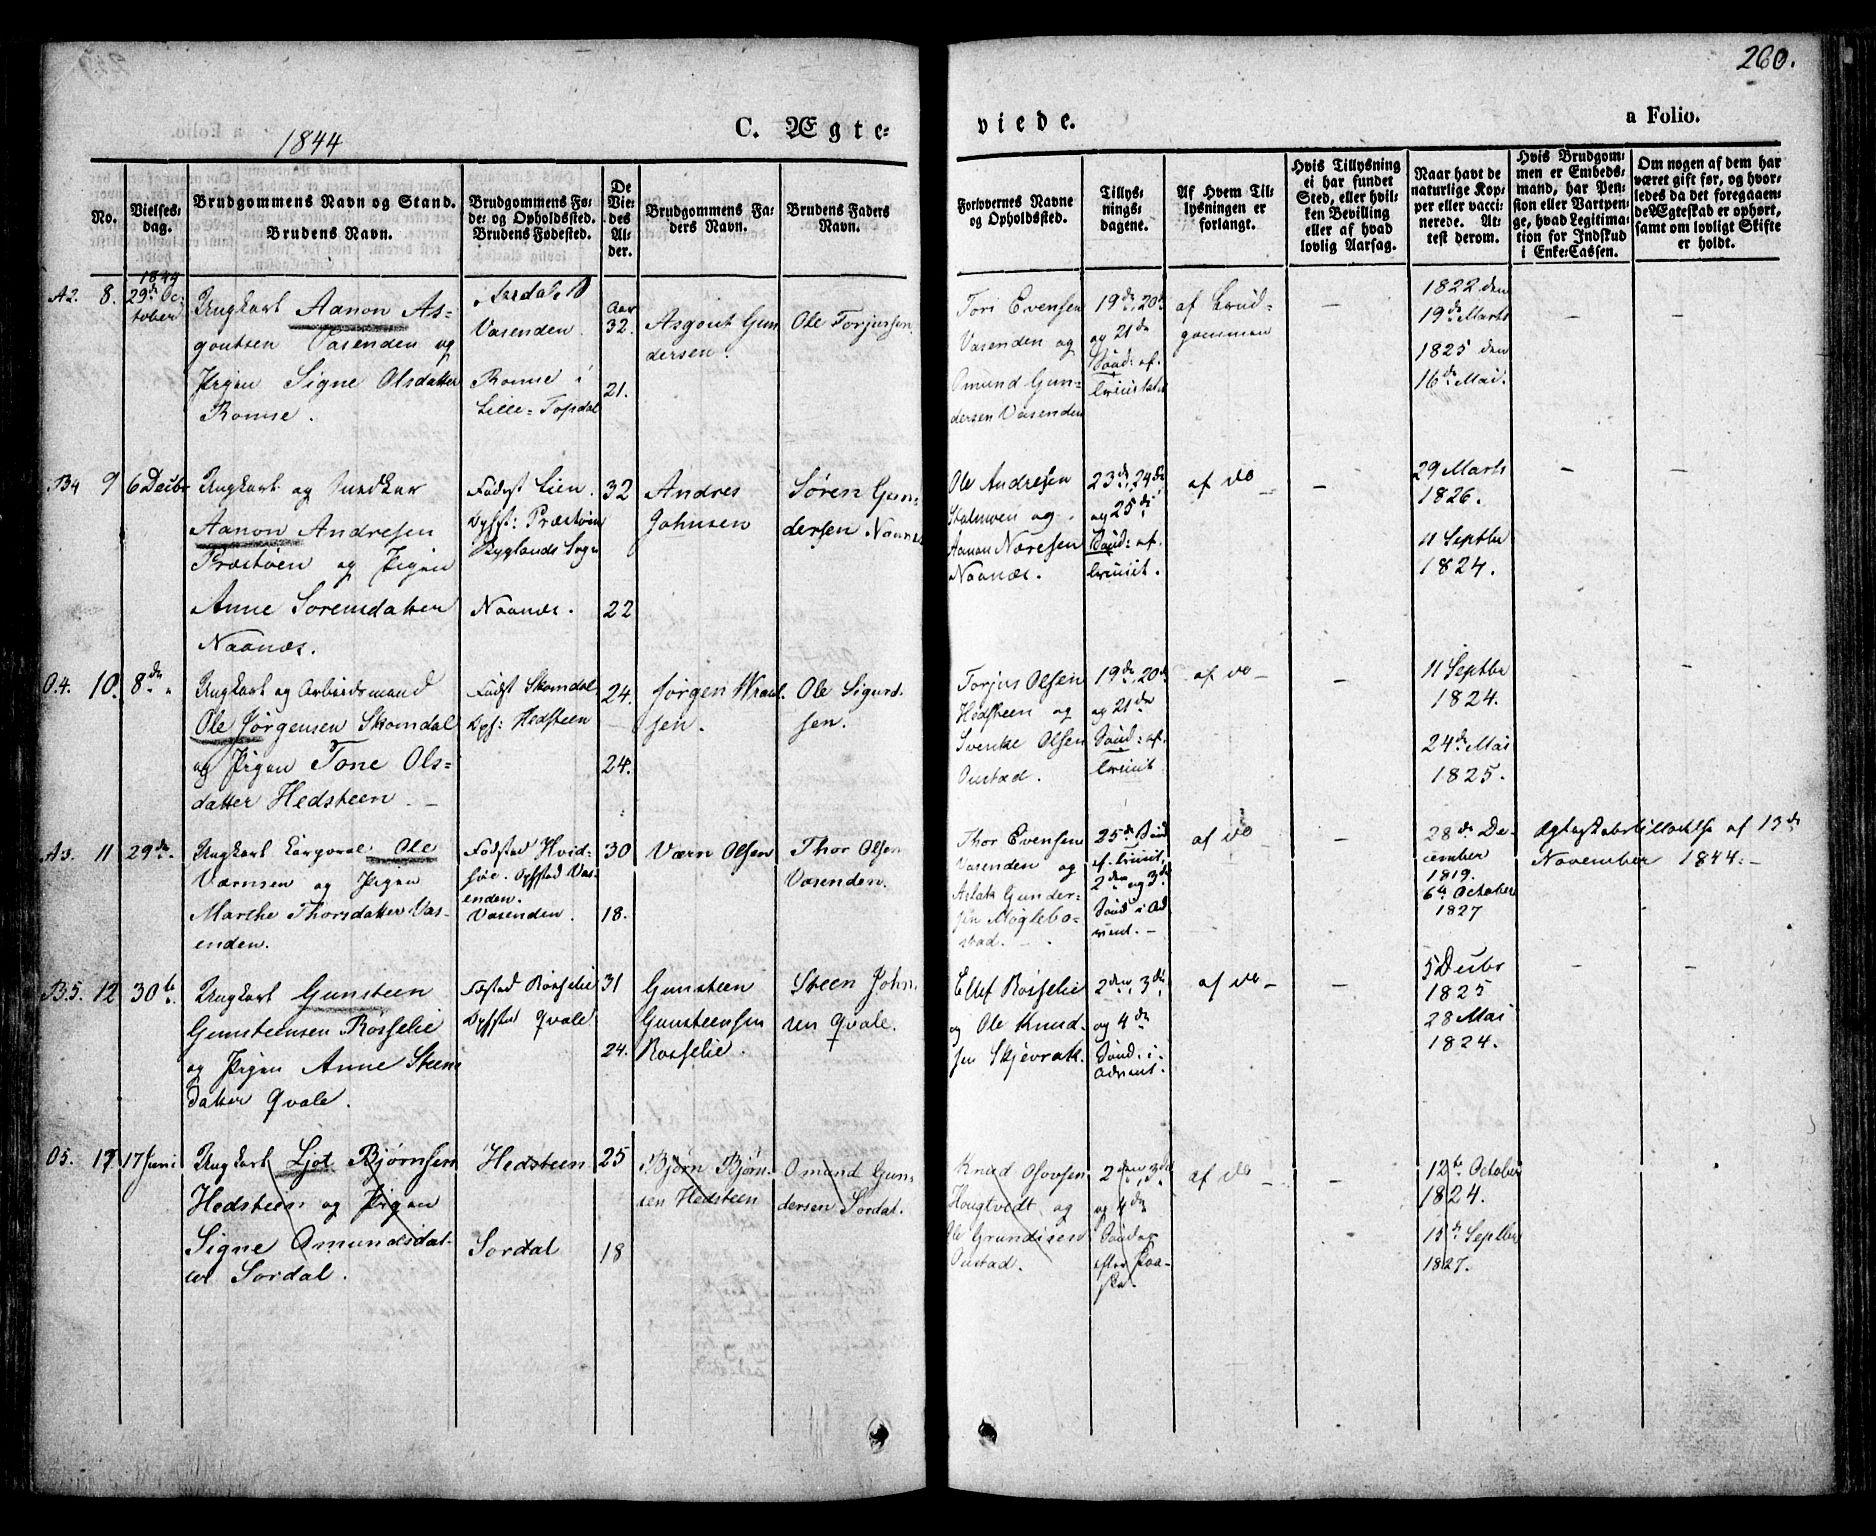 260.
1844
C. Ægte=
viede.
a Folio.
No.
Vielses=
dag.
Brudgommens Navn og Stand.
Brudens Navn.
Brudgommens Fø=
de= og Opholdssted.
Brudens Fødested.
De
Vie=
des
Al=
der.
Brudgommens Fa=
ders Navn.
Brudens Faders
Navn.
Forlovernes Navne
og Opholdssted.
Tillys=
nings=
dagene.
Af Hvem Til=
lysningen er
forlangt.
Hvis Tillysning
ei har fundet
Sted, eller hvil=
ken Bevilling
eller af hvad
lovlig Aarsag.
Naar havt de
naturlige Kop=
per eller vacci=
nerede. At=
test derom.
Hvis Brudgom=
men er Embeds=
mand, har Pen=
sion eller Vartpen=
ge, hvad Legitima=
tion for Indskud
i Enke=Cassen.
Om nogen af dem har
været gift før, og hvor=
ledes da det foregaaen=
de Ægteskab er ophørt,
samt om lovligt Skifte
er holdt.
A2. 8.
1844
29de Oc=
tober
Ungkarl Aanon As=
goutsen Vasenden og
Pigen Signe Olsdatter
Romse.
Vasenden.
Romse i
Lille=Topdal
Aar
32.
21.
Asgout Gun
dersen.
Ole Torjussen
Tori Evensen
Vasenden og
Omund Gun=
dersen Vasenden
19de, 20de
og 21de
Sønd: af.
trinitatis
af Brud=
gommen
–
1822 den
19de Marts
1825 den
16de Mai.
–
–
B4 9 6 Decbr
Ungkarl og Snedker
Aanon Andresen
Præstøen og Pigen
Anne Sorensdatter
Naanæs.
Fødest Lien.
Opfst: Præstøen
Byglands Sogn
Naanæs.
32
22
Andres
Johnsen
Søren Gun=
dersen Naanæs
Ole Andresen
og
Aanon Noresen
Naanæs.
23de, 24de
og 25de
Sønd: af.
trinit.
af do –
–
29 Marts
1826.
11 Septbr
1824.
–
–
O.4. 10. 8de "
Ungkarl og Arbeidsmand
Ole Jørgensen Skomdal
og Pigen Tone Ols=
datter Hedsteen. –
Født Skomdal
Opf: Hedsteen
24.
24.
Jørgen
sen.
Ole Sigurd
sen.
Torjus Olsen
Hedsteen og
Svenke Olsen
Oustad.
19de, 20de
og 21de
Sønd: af.
trinit
af do –
–
11 Septbr
1824.
24de Mai
1825.
–
A3. 11 29de.
Ungkarl Corporal Ole
Værnsen og Pigen
Marthe Thorsdatter Vas=
enden.
Fødsted Hvid=
søe. Opfsted Vas=
enden.
Vasenden.
30
18.
Værn Olsen
Thor Olsen
Vasenden.
Thor Evensen
Vasenden og
Aslak Gunder=
sen Møglebo=
stad. –
25de Sønd
af. trinit,
2den og 3de
Sønd i Ad
vent. –
af do
–
28de De=
cember
1819.
6te October
1827
Ægteskabstilladelse af 13de
November 1844. –
B5. 12 30te.
Ungkarl Gunsteen
Gunsteensen Rosselie
og Pigen Anne Steens
datter Qvale.
Føsted Rosselie
Opfsted Qvale.
31
24.
Gunsteen
Gunsteensen
Rosselie.
Steen John
sen Qvale.
Ellef Rosselie
og Ole Knud=
sen Skjevrak.
2den, 3de
og 4de
Sønd: i.
Advent.
af do –
–
5 Decbr
1825
28 Mai
1824.
–
–
O5. 17 Juni
Ungkarl Ljot Bjørnsen
Hedsteen og Pigen
Signe Omundsdat=
ter Sordal.
Hedsteen
Sordal
25
18
Bjørn Bjørn=
sen Hedsteen
Omund Gun
dersen Sordal.
Knud Osovsen
Hougtvedt og
Ole Grundesen
Oustad.
2den, 3de
og 4de
Søndag
efter Paa=
ske.
af do –
–
12te October
1824.
15de Septbr
1827.